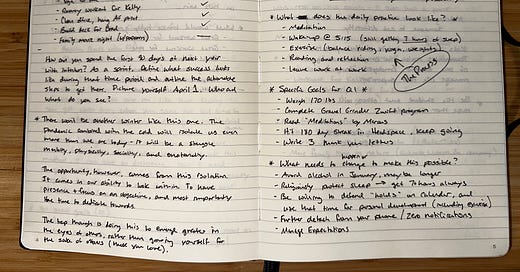 - Gravity workout for Kelly
- Clean office, hang art print
- Build desk for Brad
- Family movie night
How can you spend the first 90 days of next year
with intention? As a sprint. Define what success looks
like during that time period and outline the actionable
steps to get there. Picture yourself April 1. Who and
what do you see?
* There won't be another winter like this one. The
pandemic combined with the cold will isolate us even
more than we are today. It will be a struggle
mentally, physically, socially, and emotionally.
The opportunity, however, comes from this isolation.
It comes in our ability to look within. To have
presence + focus on an objective, and most importantly
the time to dedicate towards.
The hope though is doing this to emerge greater in
the eyes of others, rather than growing yourself for
the sake of others (those you love).
* What does the daily practice look like?
- Meditation
- Wakeup @ 5:15 (still getting 7 hours of sleep)
- Exercise (balance riding, yoga, weights)
- Reading and reflection
- Leave work at work
The Pounds
* Specific Goals for Q1 *
- Weigh 170 lbs
- Complete Gravel Grinder Zwift program
- Read "Meditations" by Marcus
- Hit 180 day streak in Headspace, keep going
- Write 3 thank you letters
* What needs to happen to make this possible?
- Avoid alcohol in January, maybe longer
- Religiously protect sleep → get 7 hours always
- Be willing to defend "holds" on calendar, and
use that time for personal development (including exercise)
- Further detach from your phone / zero notifications
- Manage Expectations
5